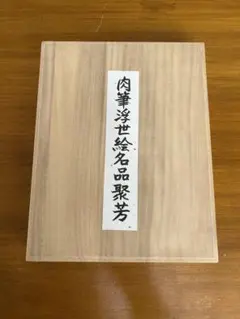 肉筆浮世絵名品聚芳